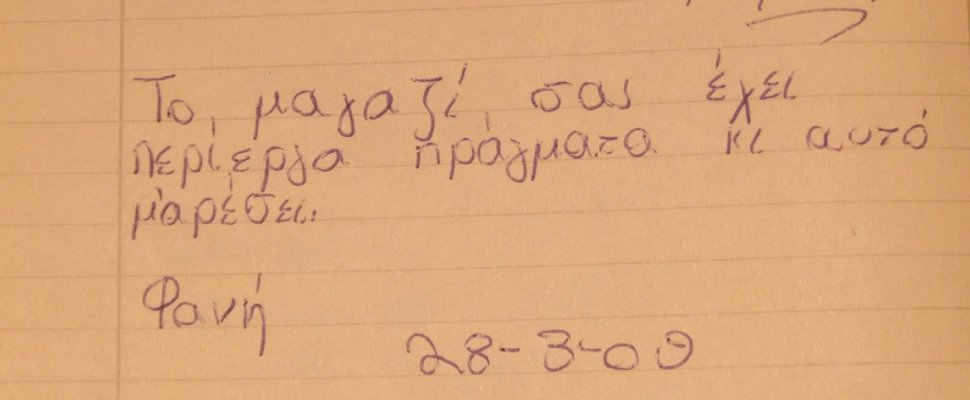 Το μαγαζί σας έχει
περίεργα πράγματα κι αυτό
μ'αρέσει.
Φανή
28-3-09